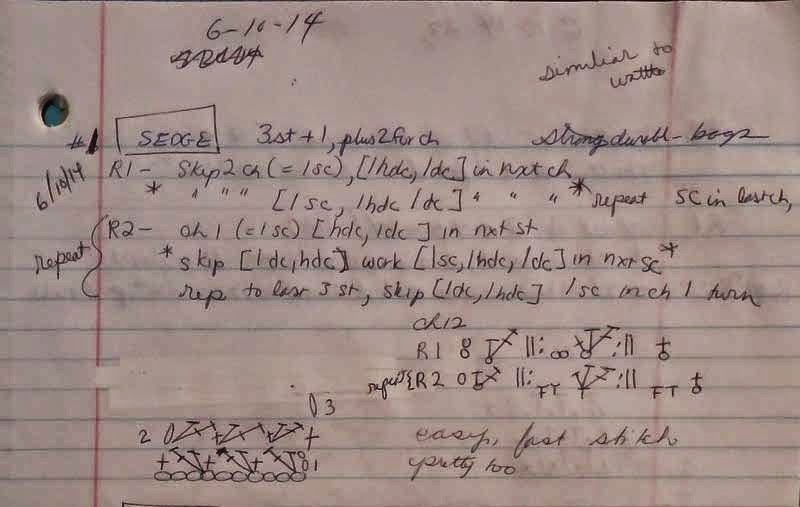 6-10-14
similiar to
#1 SEDGE 3st+1, plus 2 for ch strong durabl-bags
6/10/14
R1- Skip 2 ch (=1sc), [1hdc, 1dc] in nxt ch
* " " " [1sc, 1hdc 1dc] " " " * repeat sc in last ch,
repeat
R2- ch 1 (=1sc) [hdc, 1dc] in nxt st
* skip [1dc, hdc] work [1sc, 1hdc, 1dc] in nxt sc *
rep to last 3 st, skip [1dc, 1hdc] 1sc in ch 1 turn
ch12
R1
repeat { R2
3
2
1
easy, fast stitch
pretty too